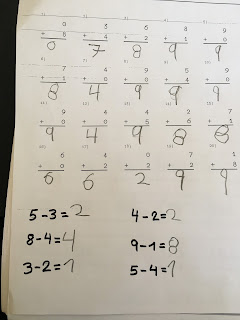 0 3 6 8 9
+ 0 + 4 + 2 + 1 + 0
0 7 8 9 9
7 4 9 5 9
+ 1 + 0 + 0 + 4 + 0
8 4 9 9 9
9 4 5 2 7
+ 0 + 0 + 4 + 6 + 1
9 4 9 8 8
6 4 0 7 1
+ 0 + 2 + 2 + 2 + 8
6 6 2 9 9
5-3=2 4-2=2
8-4=4 9-1=8
3-2=1 5-4=1